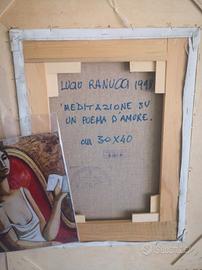 LUCIO RANUCCI 1998
"MEDITAZIONE SU
UN POEMA D'AMORE.
cm 30X40
subito